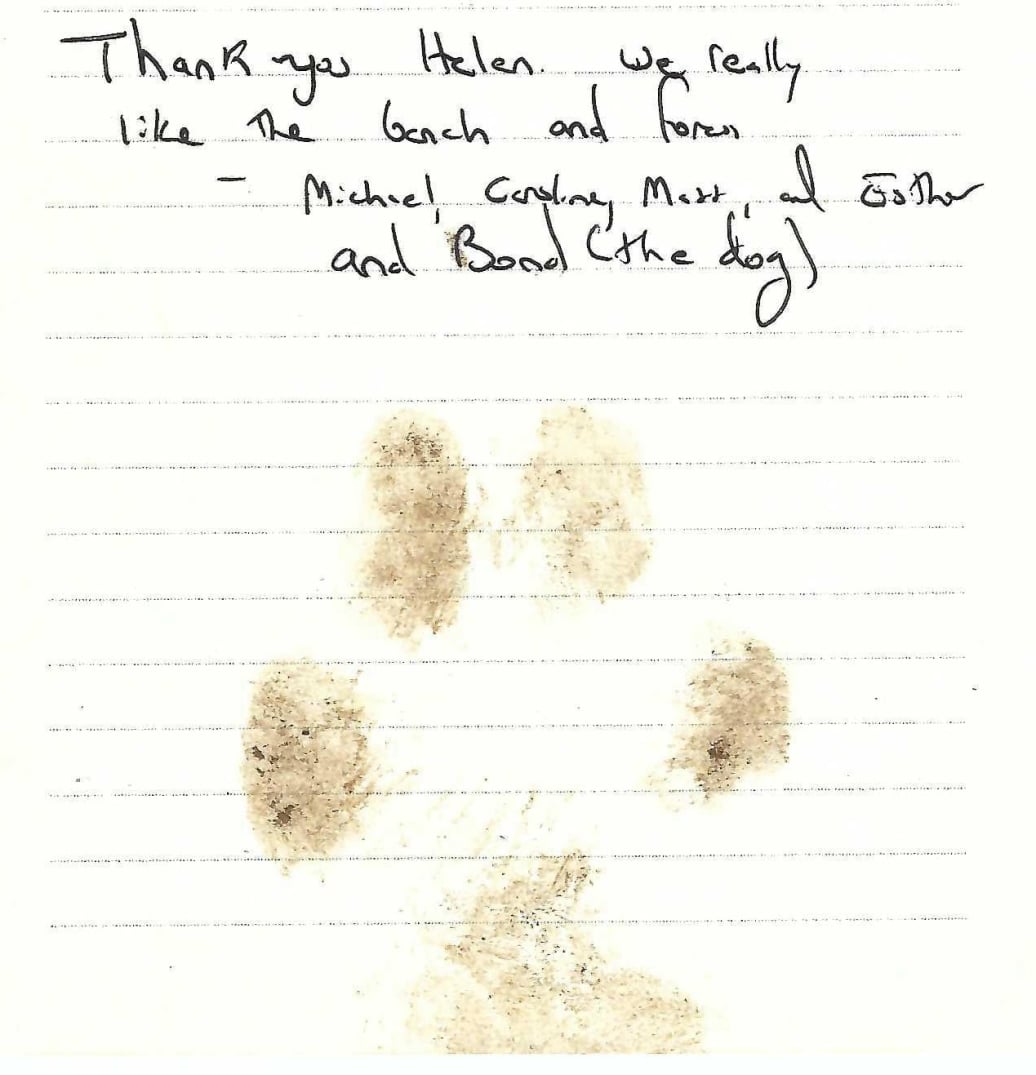 Thank you Helen. We really
like the bench and
- Michael, Caroline, Matt, and Esther
and Bond (the dog)